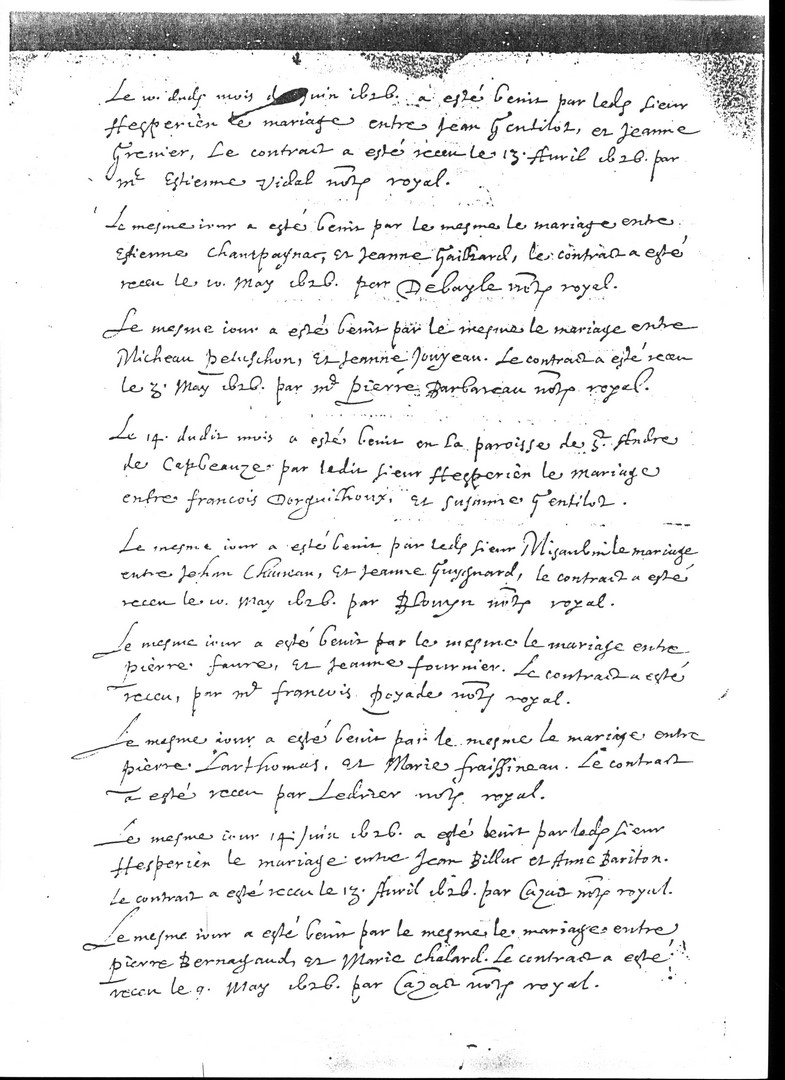 Le 10. dudt mois de Juin 1626. a esté benit par ledt sieur
Hesperièn le mariage entre Jean Gentilot, et Jeanne
Grenier, Le contract a esté receu le 13. Avril 1626. par
me Estienne Vidal note royal.
Le mesme iour a esté benit par le mesme le mariage entre
Estienne Champagnac, Et Jeanne Gaillard, le contract a esté
receu le 10. May 1626. par Debayle note royal.
Le mesme iour a esté benit par le mesme le mariage entre
Micheau Peluschon, Et Jeanne Jouyeau. Le contract a esté receu
le 3. May 1626. par me Pierre Barbareau note royal.
Le 14. dudit mois a esté benit en La paroisse de St. Andre
de Capbeauze par ledit sieur Hesperièn le mariage
entre francois Dorguilhoux, et Susanne Gentilot.
Le mesme iour a esté benit par ledt sieur Misaubin le mariage
entre Jehan Chauveau, Et Jeanne Guygnard, le contract a esté
receu le 10. May 1626. par Blouyn note royal.
Le mesme iour a esté benit par le mesme le mariage entre
pièrre faure, Et Jeanne fournier. Le contract a esté
receu, par me francois Poyade note royal.
Le mesme iour a esté benit par le mesme le mariage entre
pièrre Larthomas, Et Marie fraissineau. Le contract
a esté receu par Ledrier note royal.
Le mesme iour 14. Juin 1626. a esté benit par ledt sieur
Hesperièn le mariage entre Jean Billac et Anne Bariton.
Le contract a esté receu le 13. Avril 1626. par Cazact note royal.
Le mesme iour a esté benit par le mesme le mariage entre
pierre Bernagaud, Et Marie Chalard. Le contract a esté
receu le 9. May 1626. par Cazact note royal.